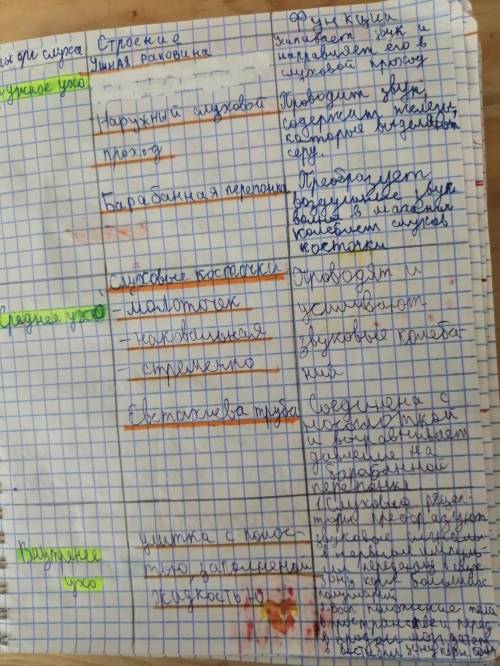 ы орг слуха
Строение
Функции
ружное ухо
Ушная раковина
Улавливает звук и
направляет его в
слуховой проход
Наружный слуховой
проход
Проводит звук,
содержит железы,
которые выделяют
серу.
Барабанная перепонка
Преобразует
воздушные звук
волны в механич
колебает слухов
косточки
Среднее ухо
слуховые косточки
- молоточек
- наковальная
- стременко
Проводят и
усиливают
звуковые колеба
ний
Евстахиева труба
Соединена с
носоглоткой
и выравнивает
давление на
барабанной
перепонки
Внутреннее
ухо
улитка с полос-
тью, заполненой
жидкостью
1. Слуховые рецеп-
торы преобразуют
звуковые сигналы
в нервные импуль-
сы передачу в слух
зону коры больших
полушарий
2-восп положение тела
в пространстве и перед
в продол мозг затем
в
зону коры